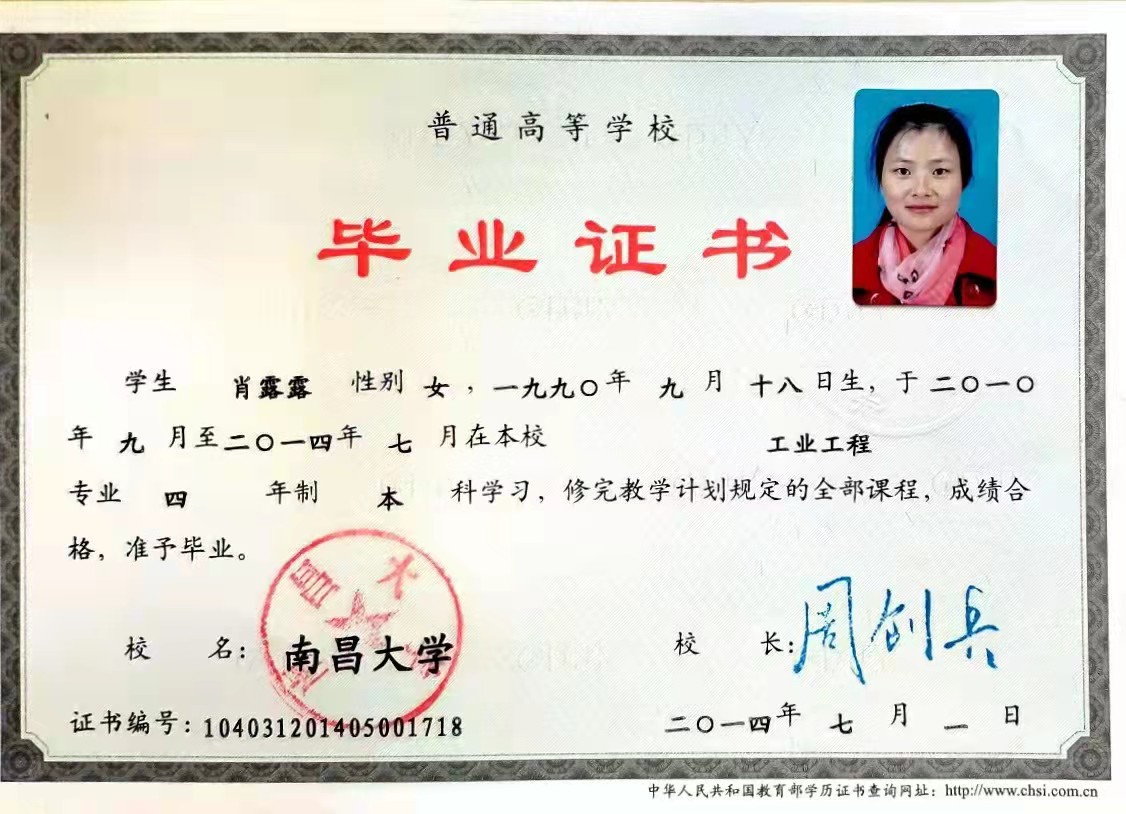 普通高等学校
毕业证书
学生 肖露露 性别 女，一九九〇年 九 月 十八 日生，于 二〇一〇
年 九 月至二〇一四年 七 月在本校 工业工程
专业 四 年制 本 科学习，修完教学计划规定的全部课程，成绩合
格，准予毕业。
校 名：南昌大学
校 长：周创兵
证书编号：104031201405001718
二〇一四年 七 月 一 日
中华人民共和国教育部学历证书查询网址：http://www.chsi.com.cn